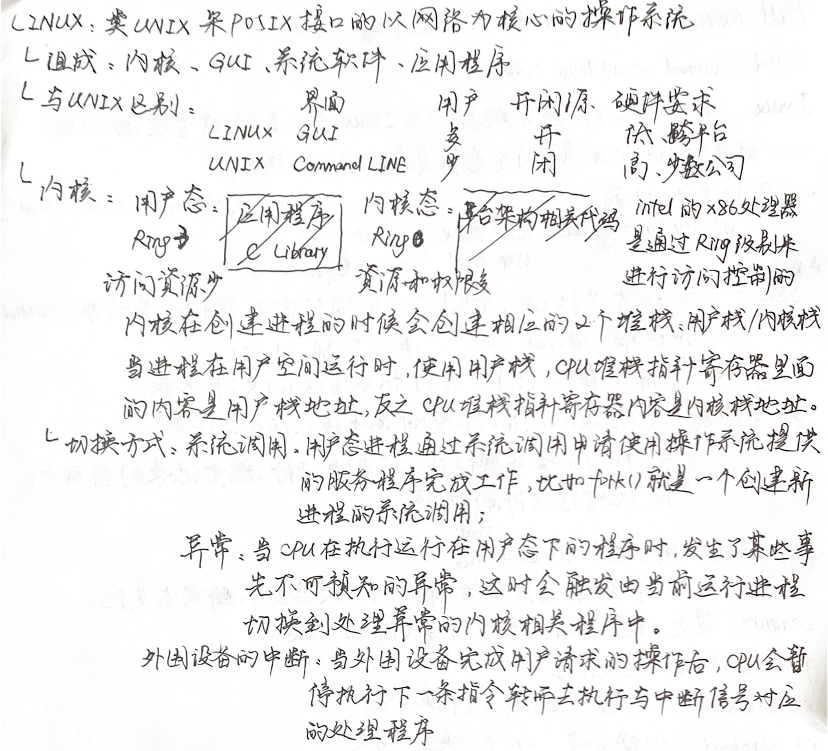 LINUX：类UNIX 采POSIX接口的以网络为核心的操作系统
└组成：内核、GUI、系统软件、应用程序
└与UNIX区别： 界面 用户 开闭源 硬件要求
LINUX GUI 多 开 低、跨平台
UNIX Command LINE 少 闭 高、少数公司
└内核：用户态： 应用程序 内核态： 平台架构相关代码 intel的x86处理器
Ring3 C Library Ring0 是通过Ring级别来
访问资源少 资源和权限多 进行访问控制的
内核在创建进程的时候会创建相应的2个堆栈：用户栈/内核栈
当进程在用户空间运行时，使用用户栈，CPU堆栈指针寄存器里面
的内容是用户栈地址，反之CPU堆栈指针寄存器内容是内核栈地址。
└切换方式：系统调用：用户态进程通过系统调用申请使用操作系统提供
的服务程序完成工作，比如fork()就是一个创建新
进程的系统调用；
异常：当CPU在执行运行在用户态下的程序时，发生了某些事
先不可预知的异常，这时会触发由当前运行进程
切换到处理异常的内核相关程序中。
外围设备的中断：当外围设备完成用户请求的操作后，CPU会暂
停执行下一条指令转而去执行与中断信号对应
的处理程序